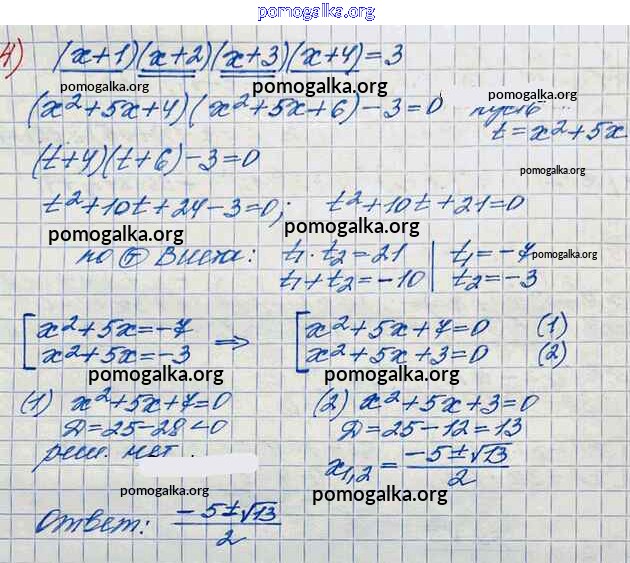 pomogalka.org
4) (x+1)(x+2)(x+3)(x+4)=3
pomogalka.org pomogalka.org pomogalka.org
(x²+5x+4)(x²+5x+6)-3=0 пусть ...
t=x²+5x
(t+4)(t+6)-3=0
pomogalka.org
t²+10t+24-3=0; t²+10t+21=0
pomogalka.org pomogalka.org
по Т Виета: t₁·t₂=21 | t₁=-7
pomogalka.org
t₁+t₂=-10 | t₂=-3
[x²+5x=-7 ⇒ [x²+5x+7=0 (1)
x²+5x=-3 x²+5x+3=0 (2)
pomogalka.org pomogalka.org
(1) x²+5x+7=0 (2) x²+5x+3=0
Д=25-28<0 Д=25-12=13
реш. нет. x₁,₂ = (-5±√13)/2
pomogalka.org pomogalka.org
Ответ: (-5±√13)/2